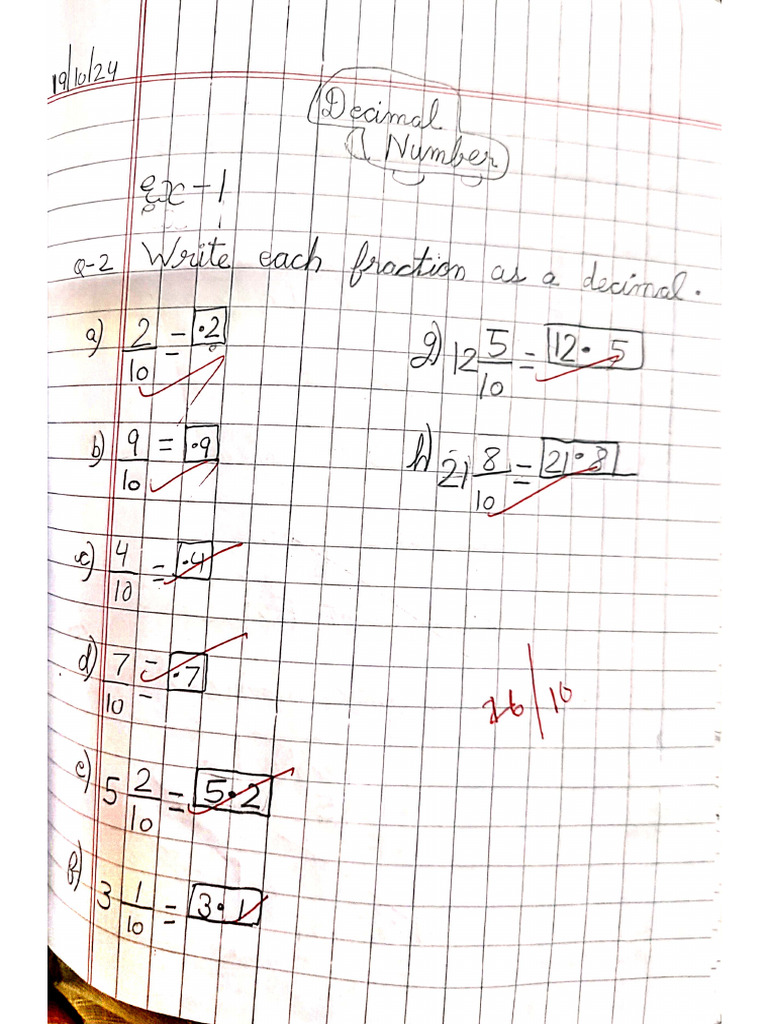 19/10/24
Decimal
Number
Ex-1
Q-2 Write each fraction as a decimal.
a) 2/10 = .2
b) 9/10 = .9
c) 4/10 = .4
d) 7/10 = .7
e) 5 2/10 = 5.2
f) 3 1/10 = 3.1
g) 12 5/10 = 12.5
h) 21 8/10 = 21.8
26/10